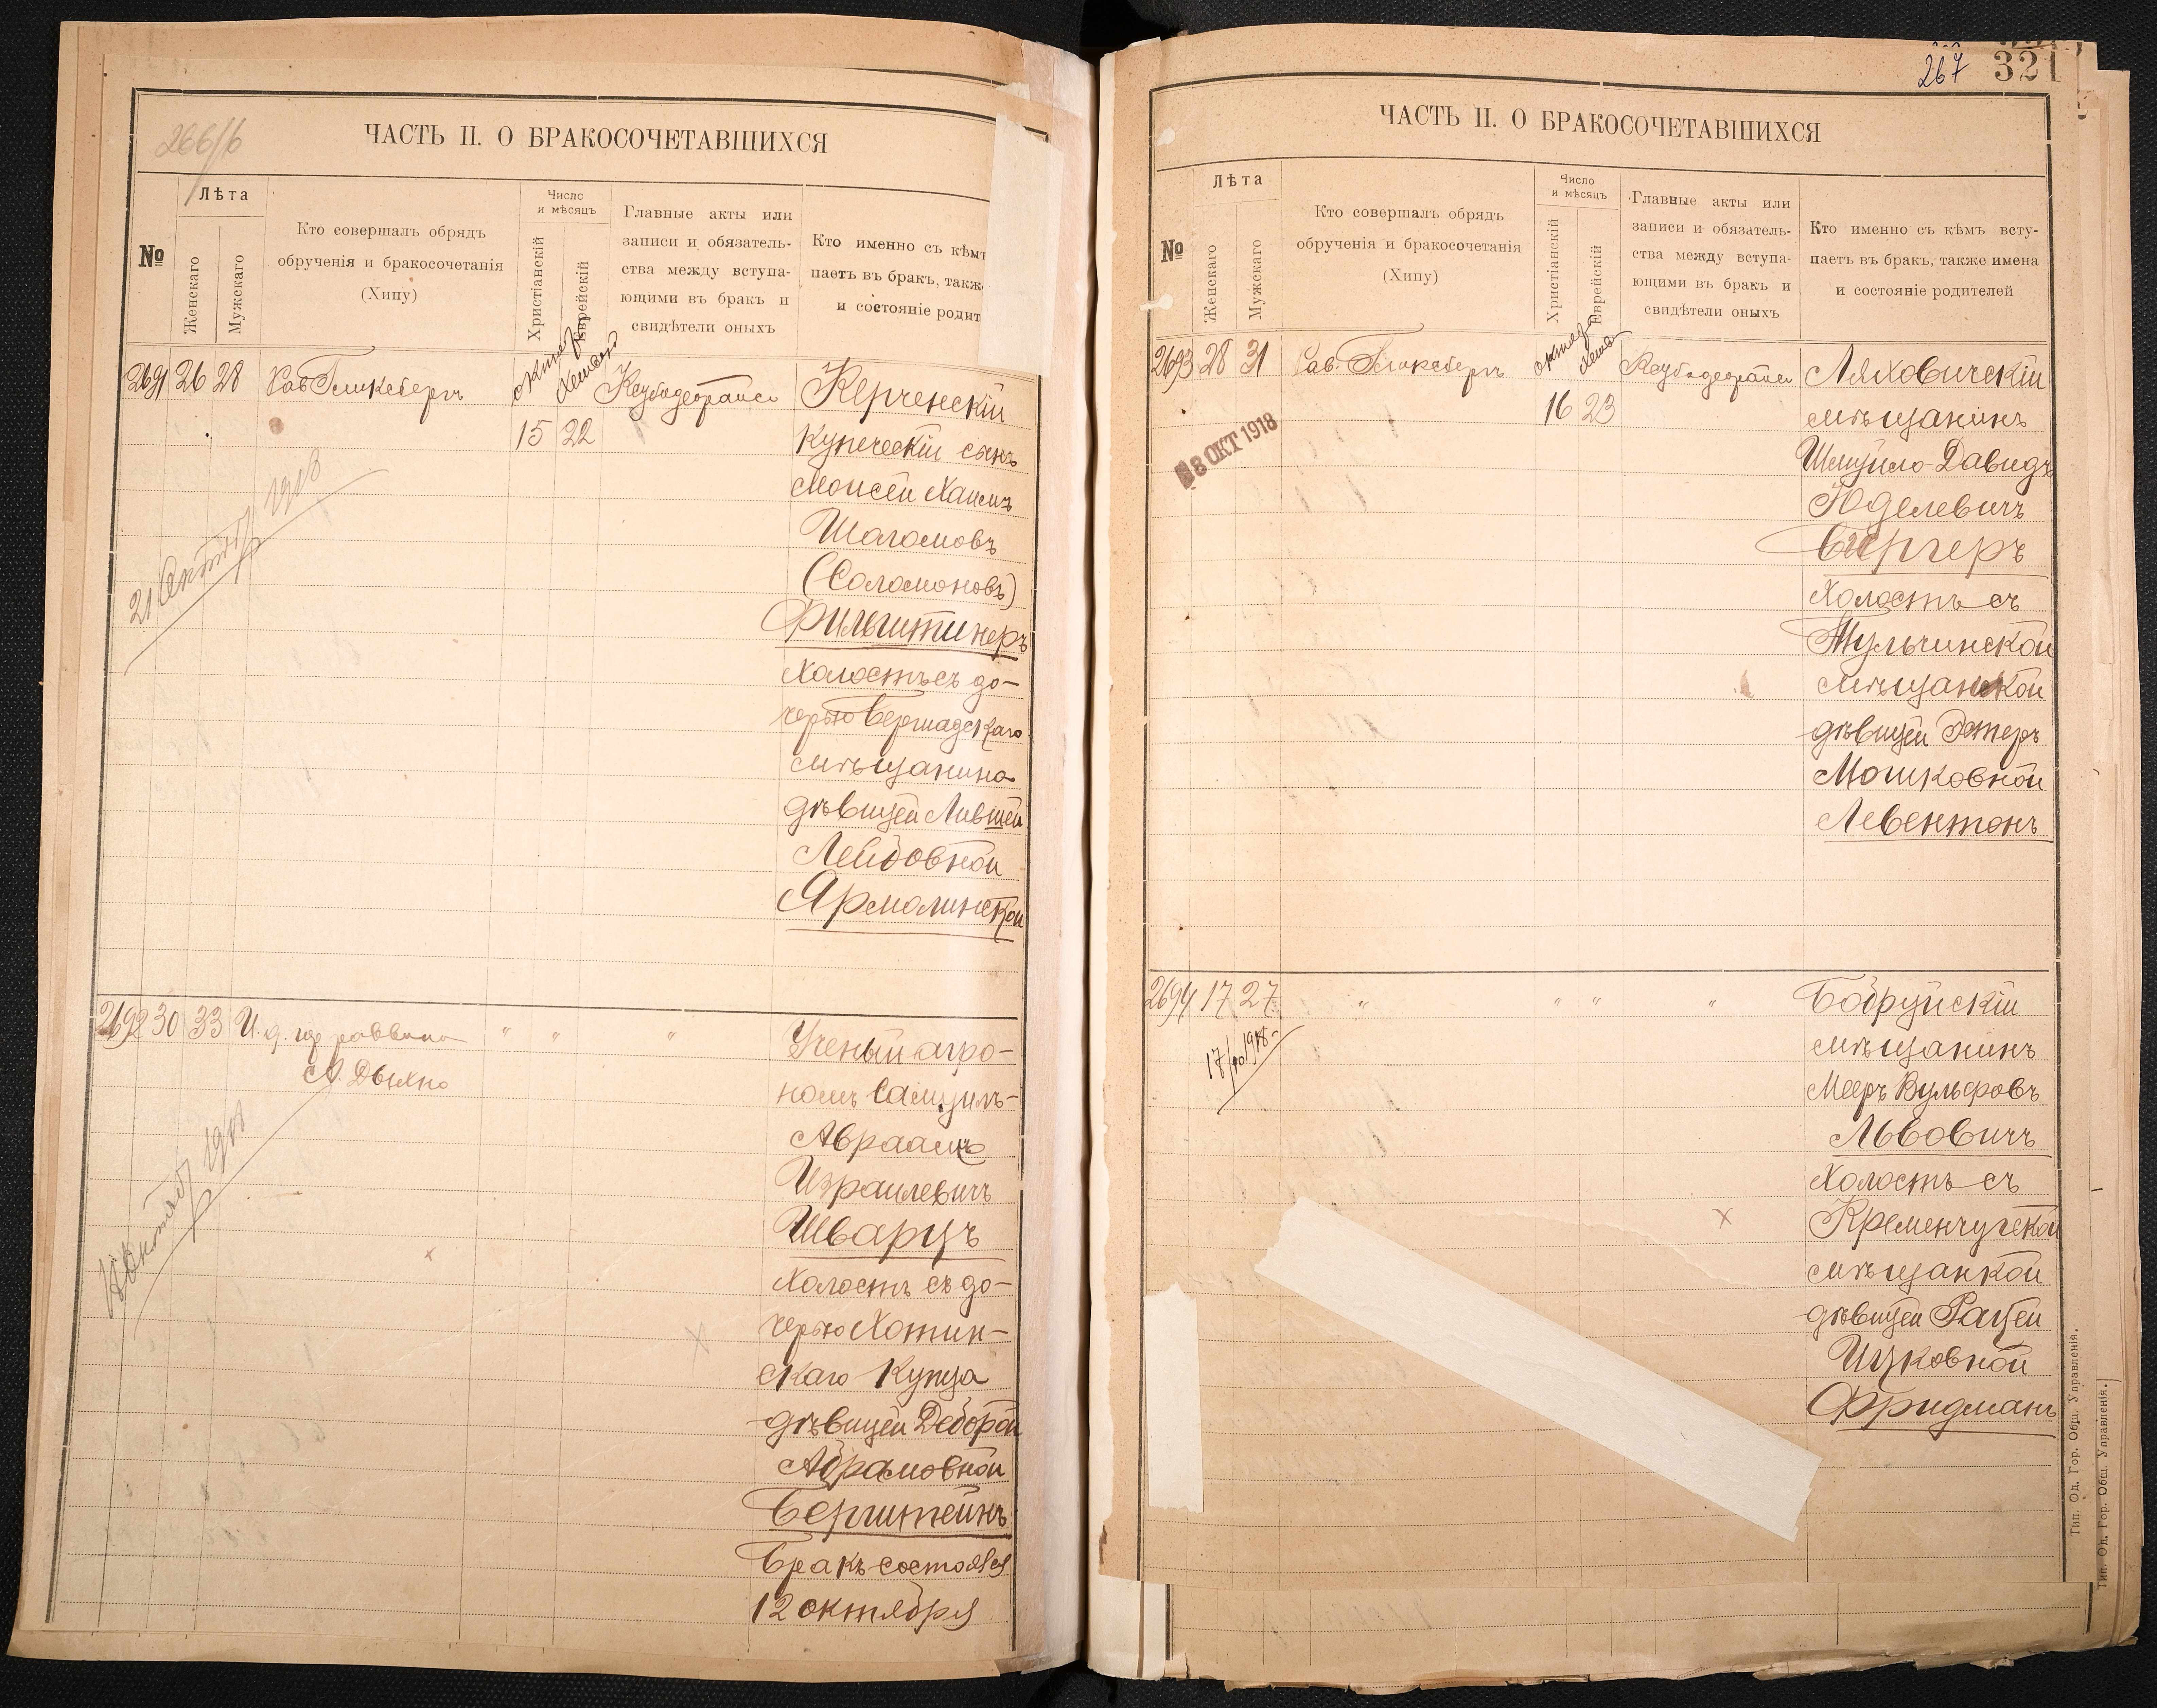 266/б
ЧАСТЬ II. О БРАКОСОЧЕТАВШИХСЯ
№
Лѣта
Женскаго
Мужскаго
Кто совершалъ обрядъ
обрученія и бракосочетанія
(Хипу)
Число
и мѣсяцъ
Христіанскій
Еврейскій
Главные акты или
записи и обязатель-
ства между вступа-
ющими въ бракъ и
свидѣтели оныхъ
Кто именно съ кѣмъ
паетъ въ бракъ, также
и состояніе родит
2691 26 28 Рав. Гликсбергъ
15 22
Керченскій
купеческій сынъ
Моисей Хаимъ
Шоломовъ
(Соломоновъ)
Фильштинеръ
холостъ съ до-
черью Бершадскаго
мѣщанина
дѣвицей Лившей
Лейбовной
Ярмолинской
1918
2692 30 33 И. д. гор раввина
А. Дыхно
" " "
Ученый агро-
номъ Самуилъ-
Авраамъ
Израилевичъ
Шварцъ
холостъ съ до-
черью Хотин-
скаго купца
дѣвицей Деборой
Абрамовной
Бернштейнъ
Бракъ состоялся
12 октября
267
321
ЧАСТЬ II. О БРАКОСОЧЕТАВШИХСЯ
№
Лѣта
Женскаго
Мужскаго
Кто совершалъ обрядъ
обрученія и бракосочетанія
(Хипу)
Число
и мѣсяцъ
Христіанскій
Еврейскій
Главные акты или
записи и обязатель-
ства между вступа-
ющими въ бракъ и
свидѣтели оныхъ
Кто именно съ кѣмъ всту-
паетъ въ бракъ, также имена
и состояніе родителей
2693 28 31 Рав. Гликсбергъ
16 23
8 ОКТ 1918
Ляховичскій
мѣщанинъ
Шмуйло-Давидъ
Юделевичъ
Бергеръ
холостъ съ
Тульчинской
мѣщанской
дѣвицей Эстеръ
Мошковной
Левентонъ
2694 17 27 " " " "
Бобруйскій
мѣщанинъ
Мееръ Вульфовъ
Львовичъ
холостъ съ
Кременчугской
мѣщанкой
дѣвицей Рацей
Ицковной
Фридманъ
Тип. Од. Гор. Общ. Управленія.
Тип. Од. Гор. Общ. Управленія.